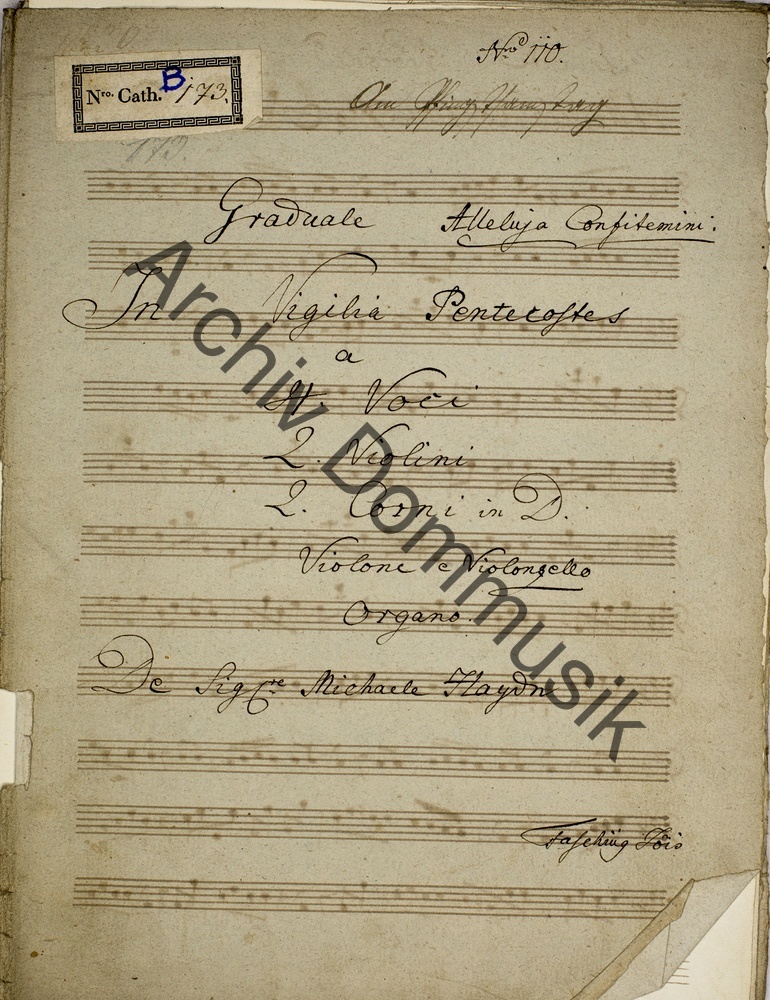 Nro 110.
Nro. Cath. B 173.
Am Pfingstsamstag
173.
Graduale Alleluja Confitemini.
In Vigilia Pentecostes
a
4. Voci
2. Violini
2. Corni in D.
Violone e Violonzello
Organo.
De Sigre Michaele Haydn
Archiv Dommusik
Fasching